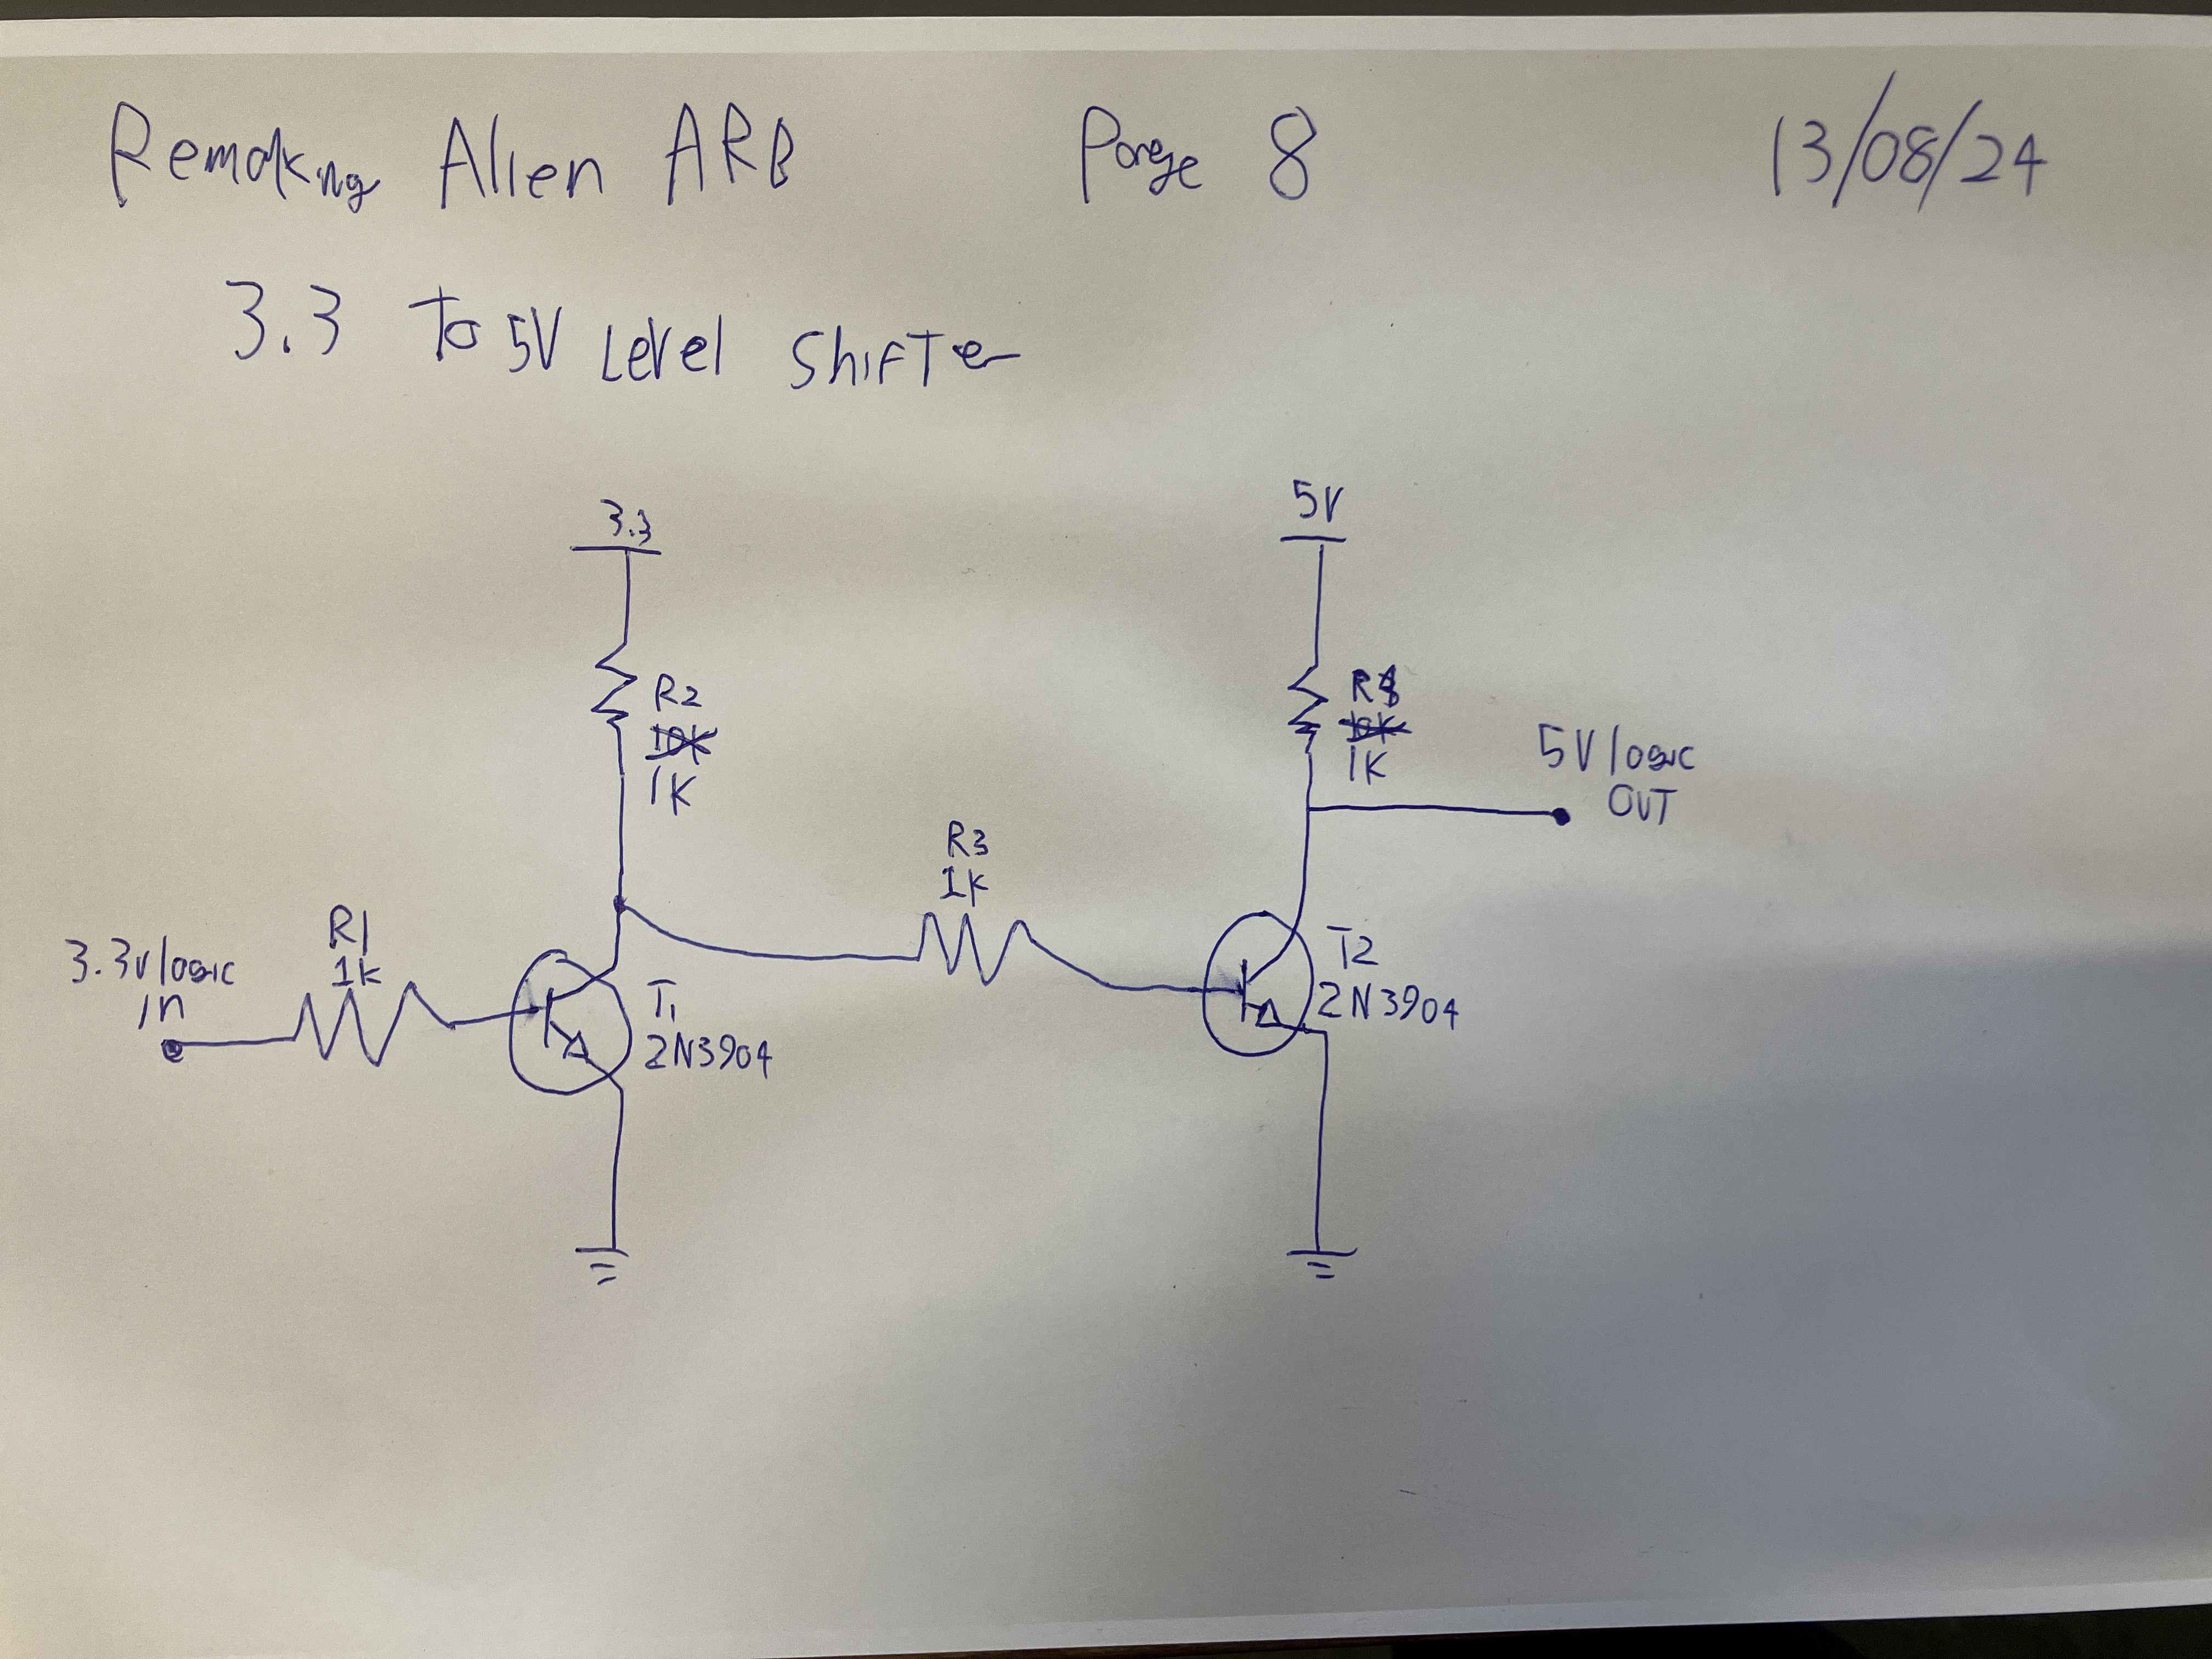 Remaking Alien ARB Page 8 13/08/24
3.3 To 5V Level Shifter
3.3
5V
R2
10K
1K
R4
10K
1K
5V logic
OUT
R3
1K
R1
1K
3.3v logic
in
T1
2N3904
T2
2N3904